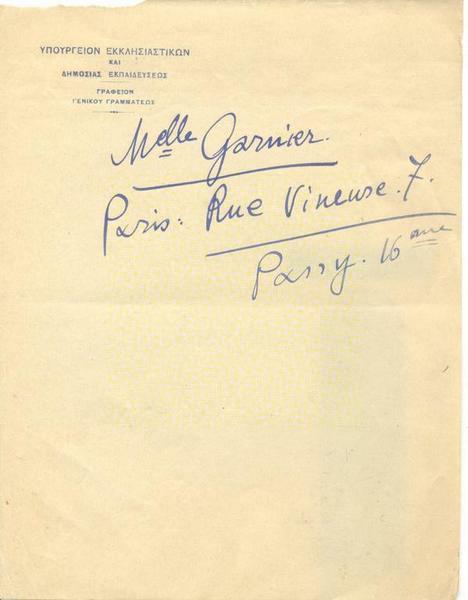 ΥΠΟΥΡΓΕΙΟΝ ΕΚΚΛΗΣΙΑΣΤΙΚΩΝ
ΚΑΙ
ΔΗΜΟΣΙΑΣ ΕΚΠΑΙΔΕΥΣΕΩΣ
ΓΡΑΦΕΙΟΝ
ΓΕΝΙΚΟΥ ΓΡΑΜΜΑΤΕΩΣ
Melle Garnier.
Paris: Rue Vineuse. 7.
Passy. 16 eme